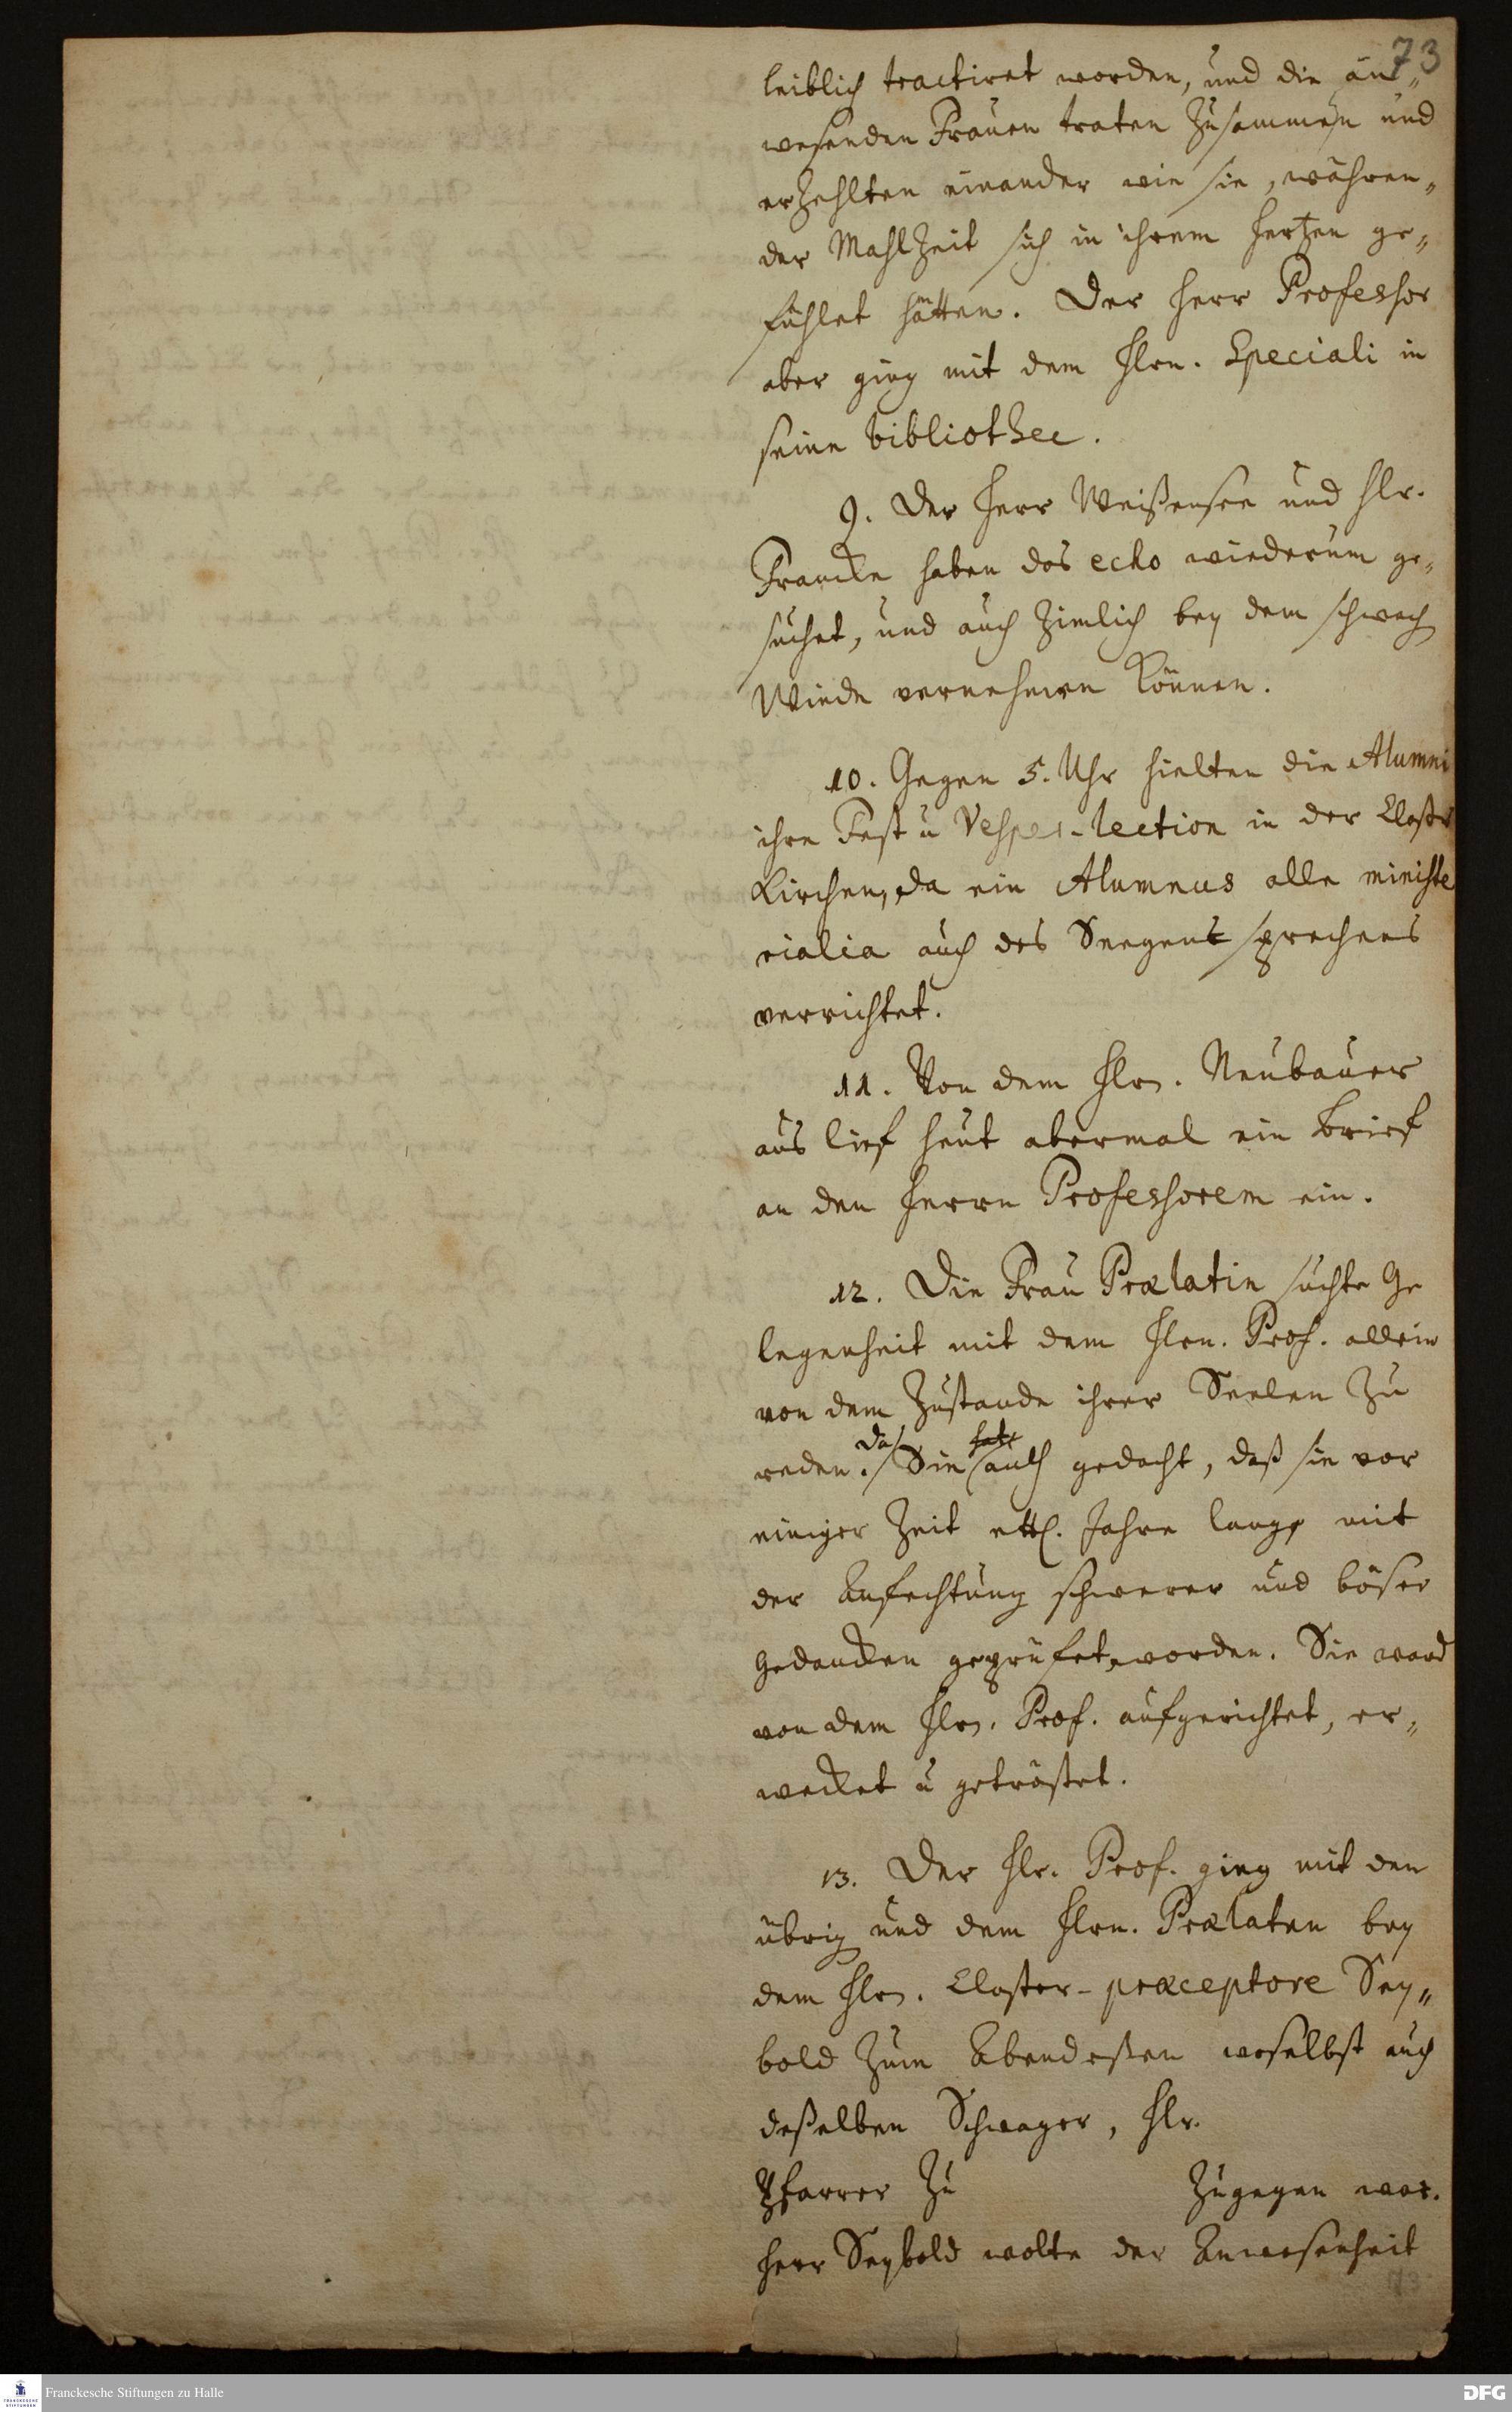 73
leiblich tractiret worden, und die an„
wesenden Frauen traten zusammen und
erzehlten einander wie sie, währen„
der Mahlzeit sich in ihrem Hertzen ge„
fühlet hätten. Der Herr Professor
aber ging mit dem Hrn. Speciali in
seine bibliothec.
9. Der Herr Weißensee und Hr.
Francke haben das echo wiederum ge„
suchet, und auch zimlich bey dem schwach
Winde vernehmen können.
10. Gegen 5. Uhr hielten die Alumni
ihre Fest u Vesper-lection in der Closter
Kirchen, da ein Alumnus alle ministe
rialia auch des Seegens sprechens
verrichtet.
11. Von dem Hrn. Neubauer
aus lief heut abermal ein Brief
an den Herrn Professorem ein.
12. Die Frau Prælatin suchte Ge
legenheit mit dem Hrn. Prof. allein
von dem Zustande ihrer Seelen zu
reden. da Sie auch gedacht, daß sie vor
einiger Zeit ettl. Jahre lang mit
der Anfechtung schwerer und böser
Gedancken geprüfet worden. Sie ward
von dem Hrn. Prof. aufgerichtet, er„
wecket u getröstet.
13. Der Hr. Prof. ging mit den
übrig und dem Hrn. Prælaten bey
dem Hrn. Closter-præceptore Sey„
bold zum Abendeßen woselbst auch
deßelben Schwager, Hr.
Pfarrer zu zugegen war.
Herr Seybold wolte der Anwesenheit
Franckesche Stiftungen zu Halle
DFG